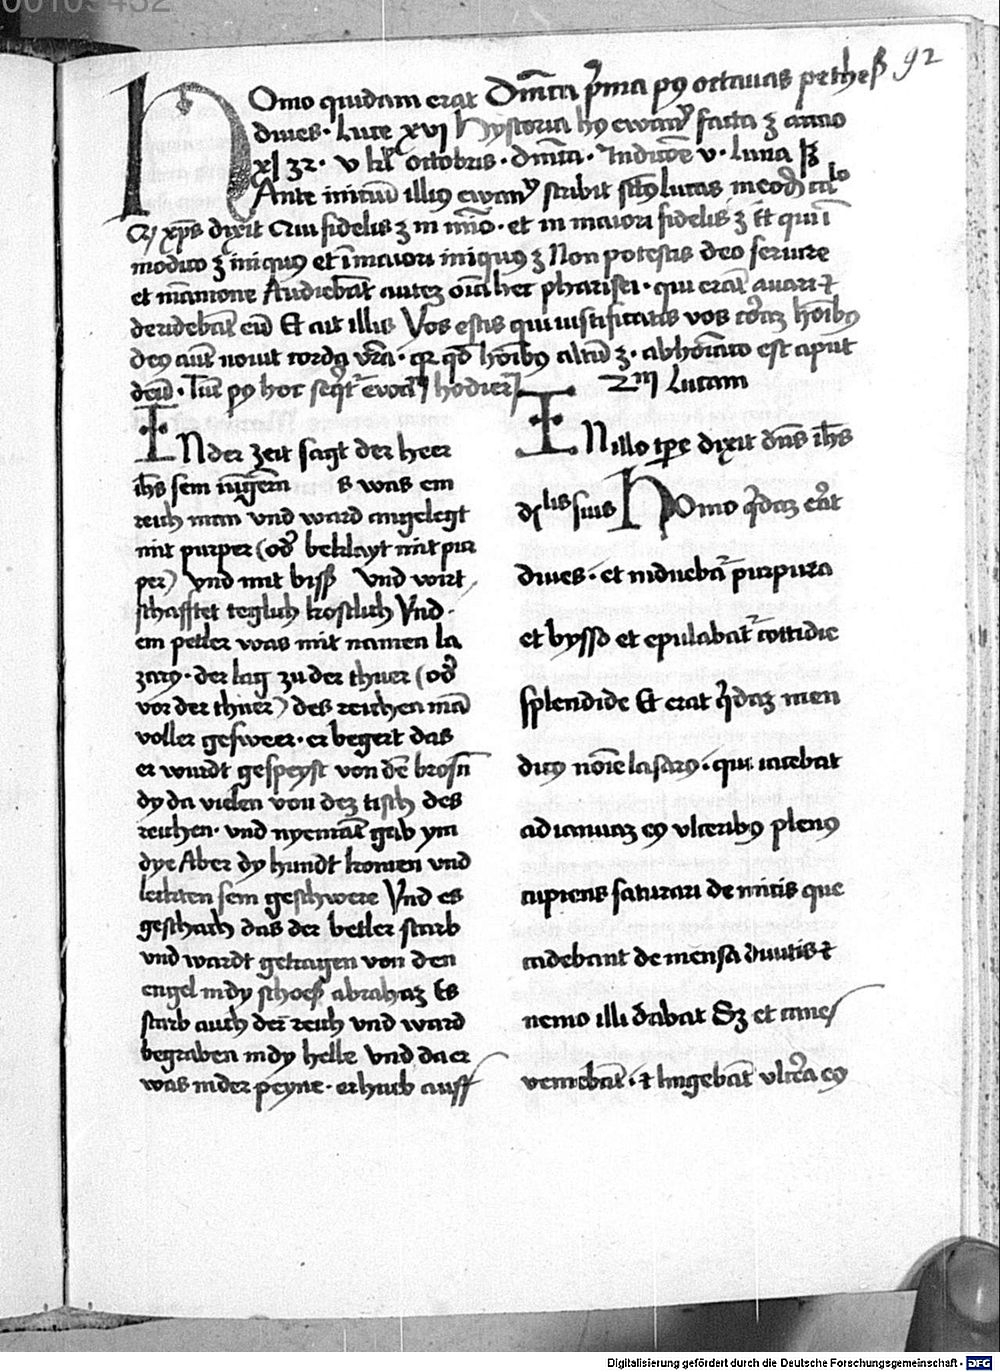 00109432
92
Homo quidam erat Dmīca pma po octauas pethe
diues . Luce xvi hystoria ewan facta ʒ anno
xl 32 . v kl octobris . dmīca . Indictoe v . Luna
Ante initiū illius ewan scribit lucas
xps dixit Qui fidelis ʒ in mīo . et in maiori fidelis ʒ Et qui ī
modico ʒ iniquus et ī maiori iniquus ʒ Non potestis deo seruire
et māmone Audiebāt autez oīa hec pharisei . qui erāt auari et
deridebāt eū Et ait illis Vos estis qui iustificatis vos corāz hoībus
deus aut nouit corda vra . qr qd hoībus altū ʒ . abhoīatio est aput
deū . Tūc hoc
Lucam
In der zeit sagt der heer
ihs sein iūgern s was ein
reich man vnd ward angelegt
mit purper (od beklayt mit pur
per) vnd mit biss vnd wirt
schafftet teglich kostlich Vnd
ein petler was mit namen la
zarus . der lag zu der thuer (od
vor der thuer) des reichen mā
voller gesweer . er begert das
er wurdt gespeyst von dē brosn
dy da vielen von dez tisch des
reichen . vnd nyemāt gab ym
dye Aber dy hundt komen vnd
leckten sein geschwere Vnd es
geschach das der betler starb
vnd wardt getragen von den
engel in dy schoess abrahaz Es
starb auch der reich vnd ward
begraben in dy helle vnd da er
was in der peyne . er hub auff
In illo tpe dixit dns ihs
suis Homo qdaz erat
diues . et induebat purpura
et bysso et epulabat cottidie
splendide Et erat qdaz men
dicus noīe lasarus . qui iacebat
ad ianuaz eius vlceribus plenus
cupiens saturari de micis que
cadebant de mensa diuitis et
nemo illi dabat Sz et canes
veniebāt . et lingebāt vlcera eius
Digitalisierung gefördert durch die Deutsche Forschungsgemeinschaft - DFG